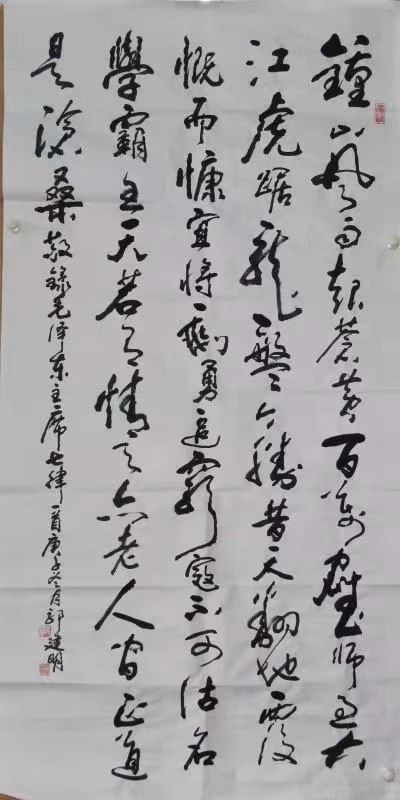 鍾山风雨起蒼黄百万雄师过大
江虎踞龍盤今勝昔天翻地覆
慨而慷宜将剩勇追窮寇不可沽名
學霸王天若有情天亦老人间正道
是滄桑敬録毛泽东主席七律一首庚子冬月郭建明